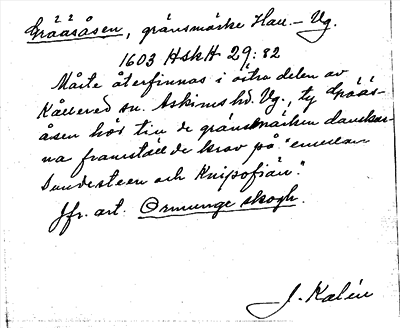 Gråäsåsen, gränsmärke Hall.- Vg.
1603 HskH 29:82
Måste återfinnas i östra delen av
Kållered sn. Askims hd. Vg., ty Gråäs-
åsen hör till de gränsmärken danskar-
na framställde krav på "emellan
Sundesteen och Knipofjän."
Jfr. art. Ormunge skogh.
J. Kalén